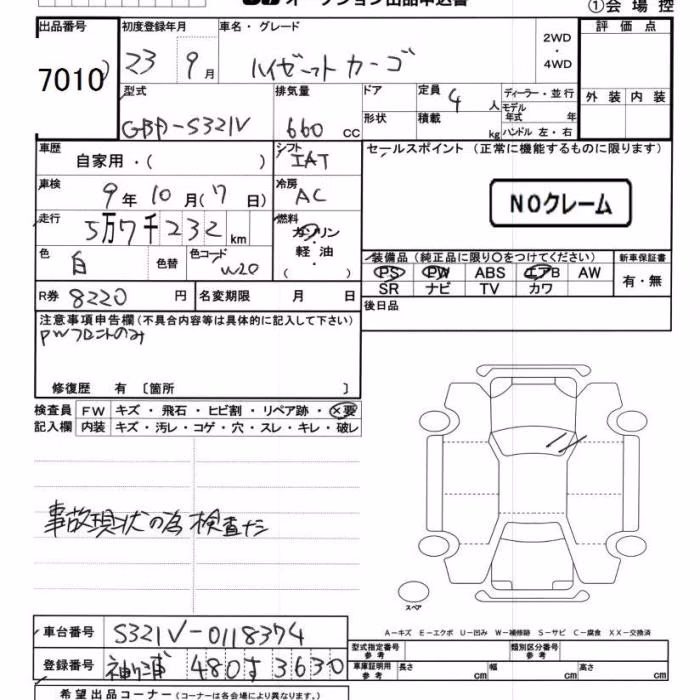 オークション出品申込書
①会場控
出品番号 7010
初度登録年月 23 9月
車名・グレード ハイゼット カーゴ
2WD・4WD
評価点
外装 内装
型式 GBD-S321V
排気量 660 cc
ドア
形状
定員 4人
積載 kg
ディーラー・並行
モデル年式 年
ハンドル 左・右
車歴 自家用・( )
シフト IAT
セールスポイント (正常に機能するものに限ります)
NOクレーム
車検 9年10月(17日)
冷房 AC
走行 5万7千232km
燃料 ガソリン・軽油・( )
色 白 色替 色コード W20
装備品 (純正品に限り〇をつけてください)
PS PW ABS エアB AW
SR ナビ TV カワ
新車保証書
有・無
R券 8220円 名変期限 月 日
後日品
注意事項申告欄 (不具合内容等は具体的に記入して下さい)
PWフロントのみ
修復歴 有 〔箇所 〕
検査員記入欄
FW キズ・飛石・ヒビ割・リペア跡・×要
内装 キズ・汚レ・コゲ・穴・スレ・キレ・破レ
事故現状の為検査ナシ
スペア
A-キズ E-エクボ U-凹み W-補修跡 S-サビ C-腐食 XX-交換済
車台番号 S321V-0118374
登録番号 袖ヶ浦 480す3630
型式指定番号参考 類別区分番号参考
車庫証明用参考 長さ cm 幅 cm 高さ cm
希望出品コーナー (コーナーは各会場により異なります。)